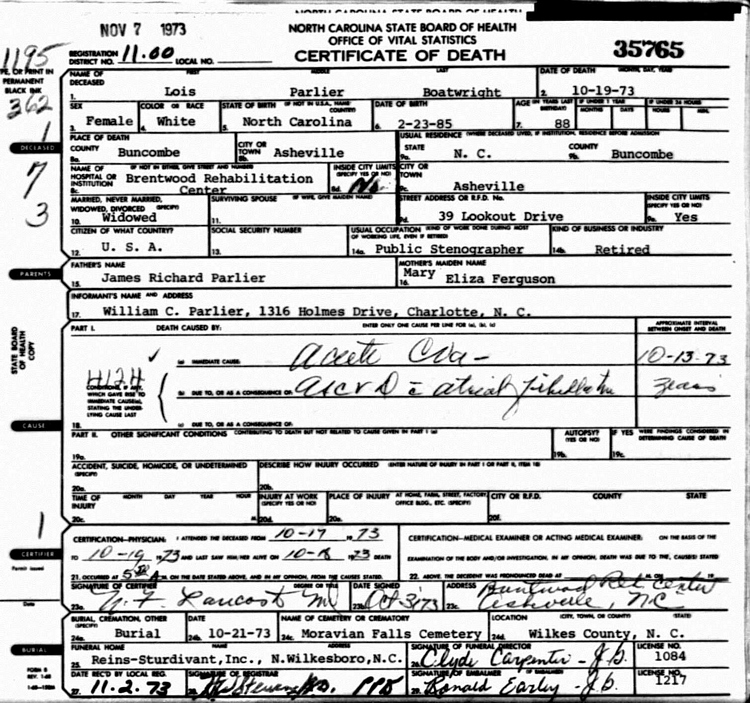 NORTH CAROLINA STATE BOARD OF HEALTH
NOV 7 1973
NORTH CAROLINA STATE BOARD OF HEALTH
OFFICE OF VITAL STATISTICS
CERTIFICATE OF DEATH
35765
1195
REGISTRATION DISTRICT NO. 11.00 LOCAL NO.
TYPE, OR PRINT IN PERMANENT BLACK INK
362
1
7
3
1
DECEASED
PARENTS
STATE BOARD OF HEALTH COPY
CAUSE
CERTIFIER
Permit issued
Date
BURIAL
NAME OF DECEASED FIRST MIDDLE LAST DATE OF DEATH MONTH, DAY, YEAR
1. Lois Parlier Boatwright 2. 10-19-73
SEX COLOR OR RACE STATE OF BIRTH (IF NOT IN U.S.A., NAME COUNTRY) DATE OF BIRTH AGE (IN YEARS LAST BIRTHDAY) IF UNDER 1 YEAR IF UNDER 24 HOURS
MONTHS DAYS HOURS MIN.
3. Female 4. White 5. North Carolina 6. 2-23-85 7. 88
PLACE OF DEATH USUAL RESIDENCE (WHERE DECEASED LIVED, IF INSTITUTION, RESIDENCE BEFORE ADMISSION)
COUNTY CITY OR TOWN STATE COUNTY
8a. Buncombe 8b. Asheville 9a. N. C. 9b. Buncombe
NAME OF HOSPITAL OR INSTITUTION (IF NOT IN EITHER, GIVE STREET AND NUMBER) INSIDE CITY LIMITS (SPECIFY YES OR NO) CITY OR TOWN
8c. Brentwood Rehabilitation Center 8d. No 9c. Asheville
MARRIED, NEVER MARRIED, WIDOWED, DIVORCED (SPECIFY) SURVIVING SPOUSE (IF WIFE, GIVE MAIDEN NAME) STREET ADDRESS OR R.F.D. No. INSIDE CITY LIMITS (SPECIFY YES OR NO)
10. Widowed 11. 9d. 39 Lookout Drive 9e. Yes
CITIZEN OF WHAT COUNTRY? SOCIAL SECURITY NUMBER USUAL OCCUPATION (KIND OF WORK DONE DURING MOST OF WORKING LIFE, EVEN IF RETIRED) KIND OF BUSINESS OR INDUSTRY
12. U. S. A. 13. 14a. Public Stenographer 14b. Retired
FATHER'S NAME MOTHER'S MAIDEN NAME
15. James Richard Parlier 16. Mary Eliza Ferguson
INFORMANT'S NAME AND ADDRESS
17. William C. Parlier, 1316 Holmes Drive, Charlotte, N. C.
PART I. DEATH CAUSED BY: ENTER ONLY ONE CAUSE PER LINE FOR (a), (b), (c) APPROXIMATE INTERVAL BETWEEN ONSET AND DEATH
(a) IMMEDIATE CAUSE: Acute CVA - 10-13-73
4124
CONDITIONS, IF ANY, WHICH GAVE RISE TO IMMEDIATE CAUSE(a), STATING THE UNDERLYING CAUSE LAST
(b) DUE TO, OR AS A CONSEQUENCE OF: ASCVD c atrial fibrillation years
18. (c) DUE TO, OR AS A CONSEQUENCE OF:
PART II. OTHER SIGNIFICANT CONDITIONS CONTRIBUTING TO DEATH BUT NOT RELATED TO CAUSE GIVEN IN PART I (a) AUTOPSY? (YES OR NO) IF YES WERE FINDINGS CONSIDERED IN DETERMINING CAUSE OF DEATH
19a. 19b. 19c.
ACCIDENT, SUICIDE, HOMICIDE, OR UNDETERMINED (SPECIFY) DESCRIBE HOW INJURY OCCURRED (ENTER NATURE OF INJURY IN PART I OR PART II, ITEM 18)
20a. 20b.
TIME OF INJURY MONTH DAY YEAR HOUR INJURY AT WORK (SPECIFY YES OR NO) PLACE OF INJURY AT HOME, FARM, STREET, FACTORY, OFFICE BLDG., ETC. (SPECIFY) CITY OR R.F.D. COUNTY STATE
20c. M. 20d. 20e. 20f.
CERTIFICATION-PHYSICIAN: I ATTENDED THE DECEASED FROM 10-17 1973 CERTIFICATION-MEDICAL EXAMINER OR ACTING MEDICAL EXAMINER: ON THE BASIS OF THE
TO 10-19 1973 AND LAST SAW HIM/HER ALIVE ON 10-18 1973 DEATH EXAMINATION OF THE BODY AND/OR INVESTIGATION, IN MY OPINION, DEATH WAS DUE TO THE, CAUSE(S) STATED
21. OCCURRED AT M. ON THE DATE STATED ABOVE, AND IN MY OPINION, FROM THE CAUSES STATED. 22. ABOVE. THE DECEDENT WAS PRONOUNCED DEAD AT M. ON 19
SIGNATURE OF CERTIFIER DEGREE OR TITLE DATE SIGNED ADDRESS Brentwood Reh. Center
23a. Lancost MD 23b. Oct 31 73 23c. Asheville, N.C.
BURIAL, CREMATION, OTHER (SPECIFY) DATE NAME OF CEMETERY OR CREMATORY LOCATION (CITY, TOWN, OR COUNTY) (STATE)
24a. Burial 24b. 10-21-73 24c. Moravian Falls Cemetery 24d. Wilkes County, N. C.
FUNERAL HOME NAME ADDRESS SIGNATURE OF FUNERAL DIRECTOR LICENSE NO.
25. Reins-Sturdivant,Inc., N.Wilkesboro,N.C. 26. Clyde Carpenter - J.G. 1084
DATE REC'D BY LOCAL REG. SIGNATURE OF REGISTRAR SIGNATURE OF EMBALMER LICENSE NO.
27. 11.2.73 28. 29. Ronald Earley - J.G. 1217
FORM 8